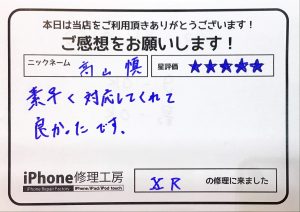 本日は当店をご利用頂きありがとうございます！
ご感想をお願いします！
ニックネーム 高山 慎 星評価 ★★★★★
素早く対応してくれて
良かったです。
iPhone修理工房
iPhone Repair Factory iPhone/iPad/iPod touch
XR の修理に来ました